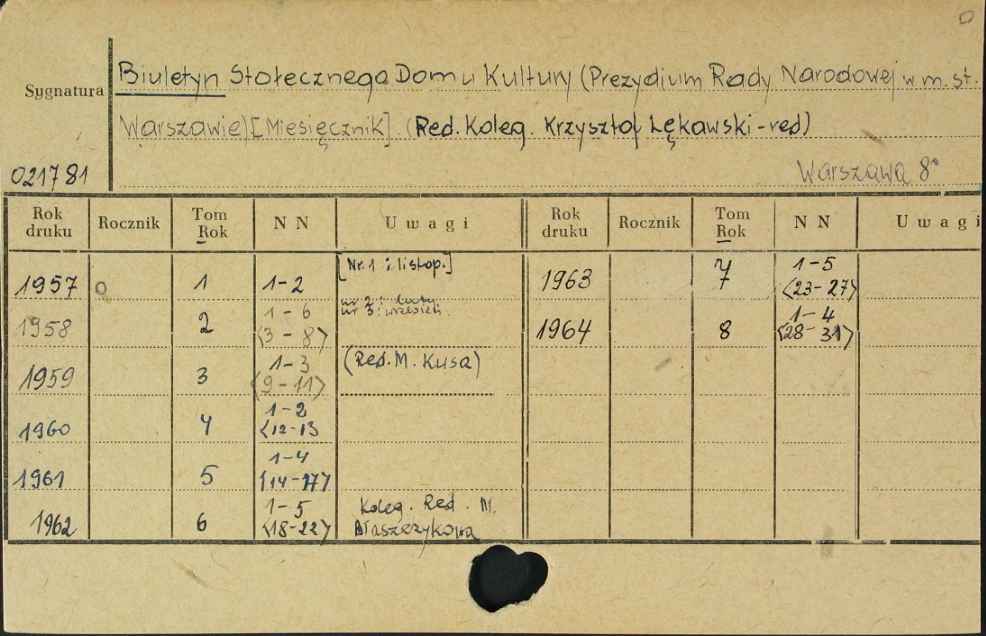 Sygnatura
Biuletyn Stołecznego Domu Kultury (Prezydium Rady Narodowej w m. st.
Warszawie) [Miesięcznik]. (Red. Koleg. Krzysztof Łękawski - red)
021781 Warszawa 8°
Rok druku Rocznik Tom Rok NN Uwagi Rok druku Rocznik Tom Rok NN Uwagi
1957 1 1-2 [Nr. 1 : listop.] 1963 7 1-5 <23-27>
1958 2 1-6 <3-8> nr 2 : luty. nr 3 : wrzesień. 1964 8 1-4 <28-31>
1959 3 1-3 <9-11> (Red. M. Kusa)
1960 4 1-2 <12-13
1961 5 1-4 <14-17>
1962 6 1-5 <18-22> Koleg. Red. M. Błaszczykowa